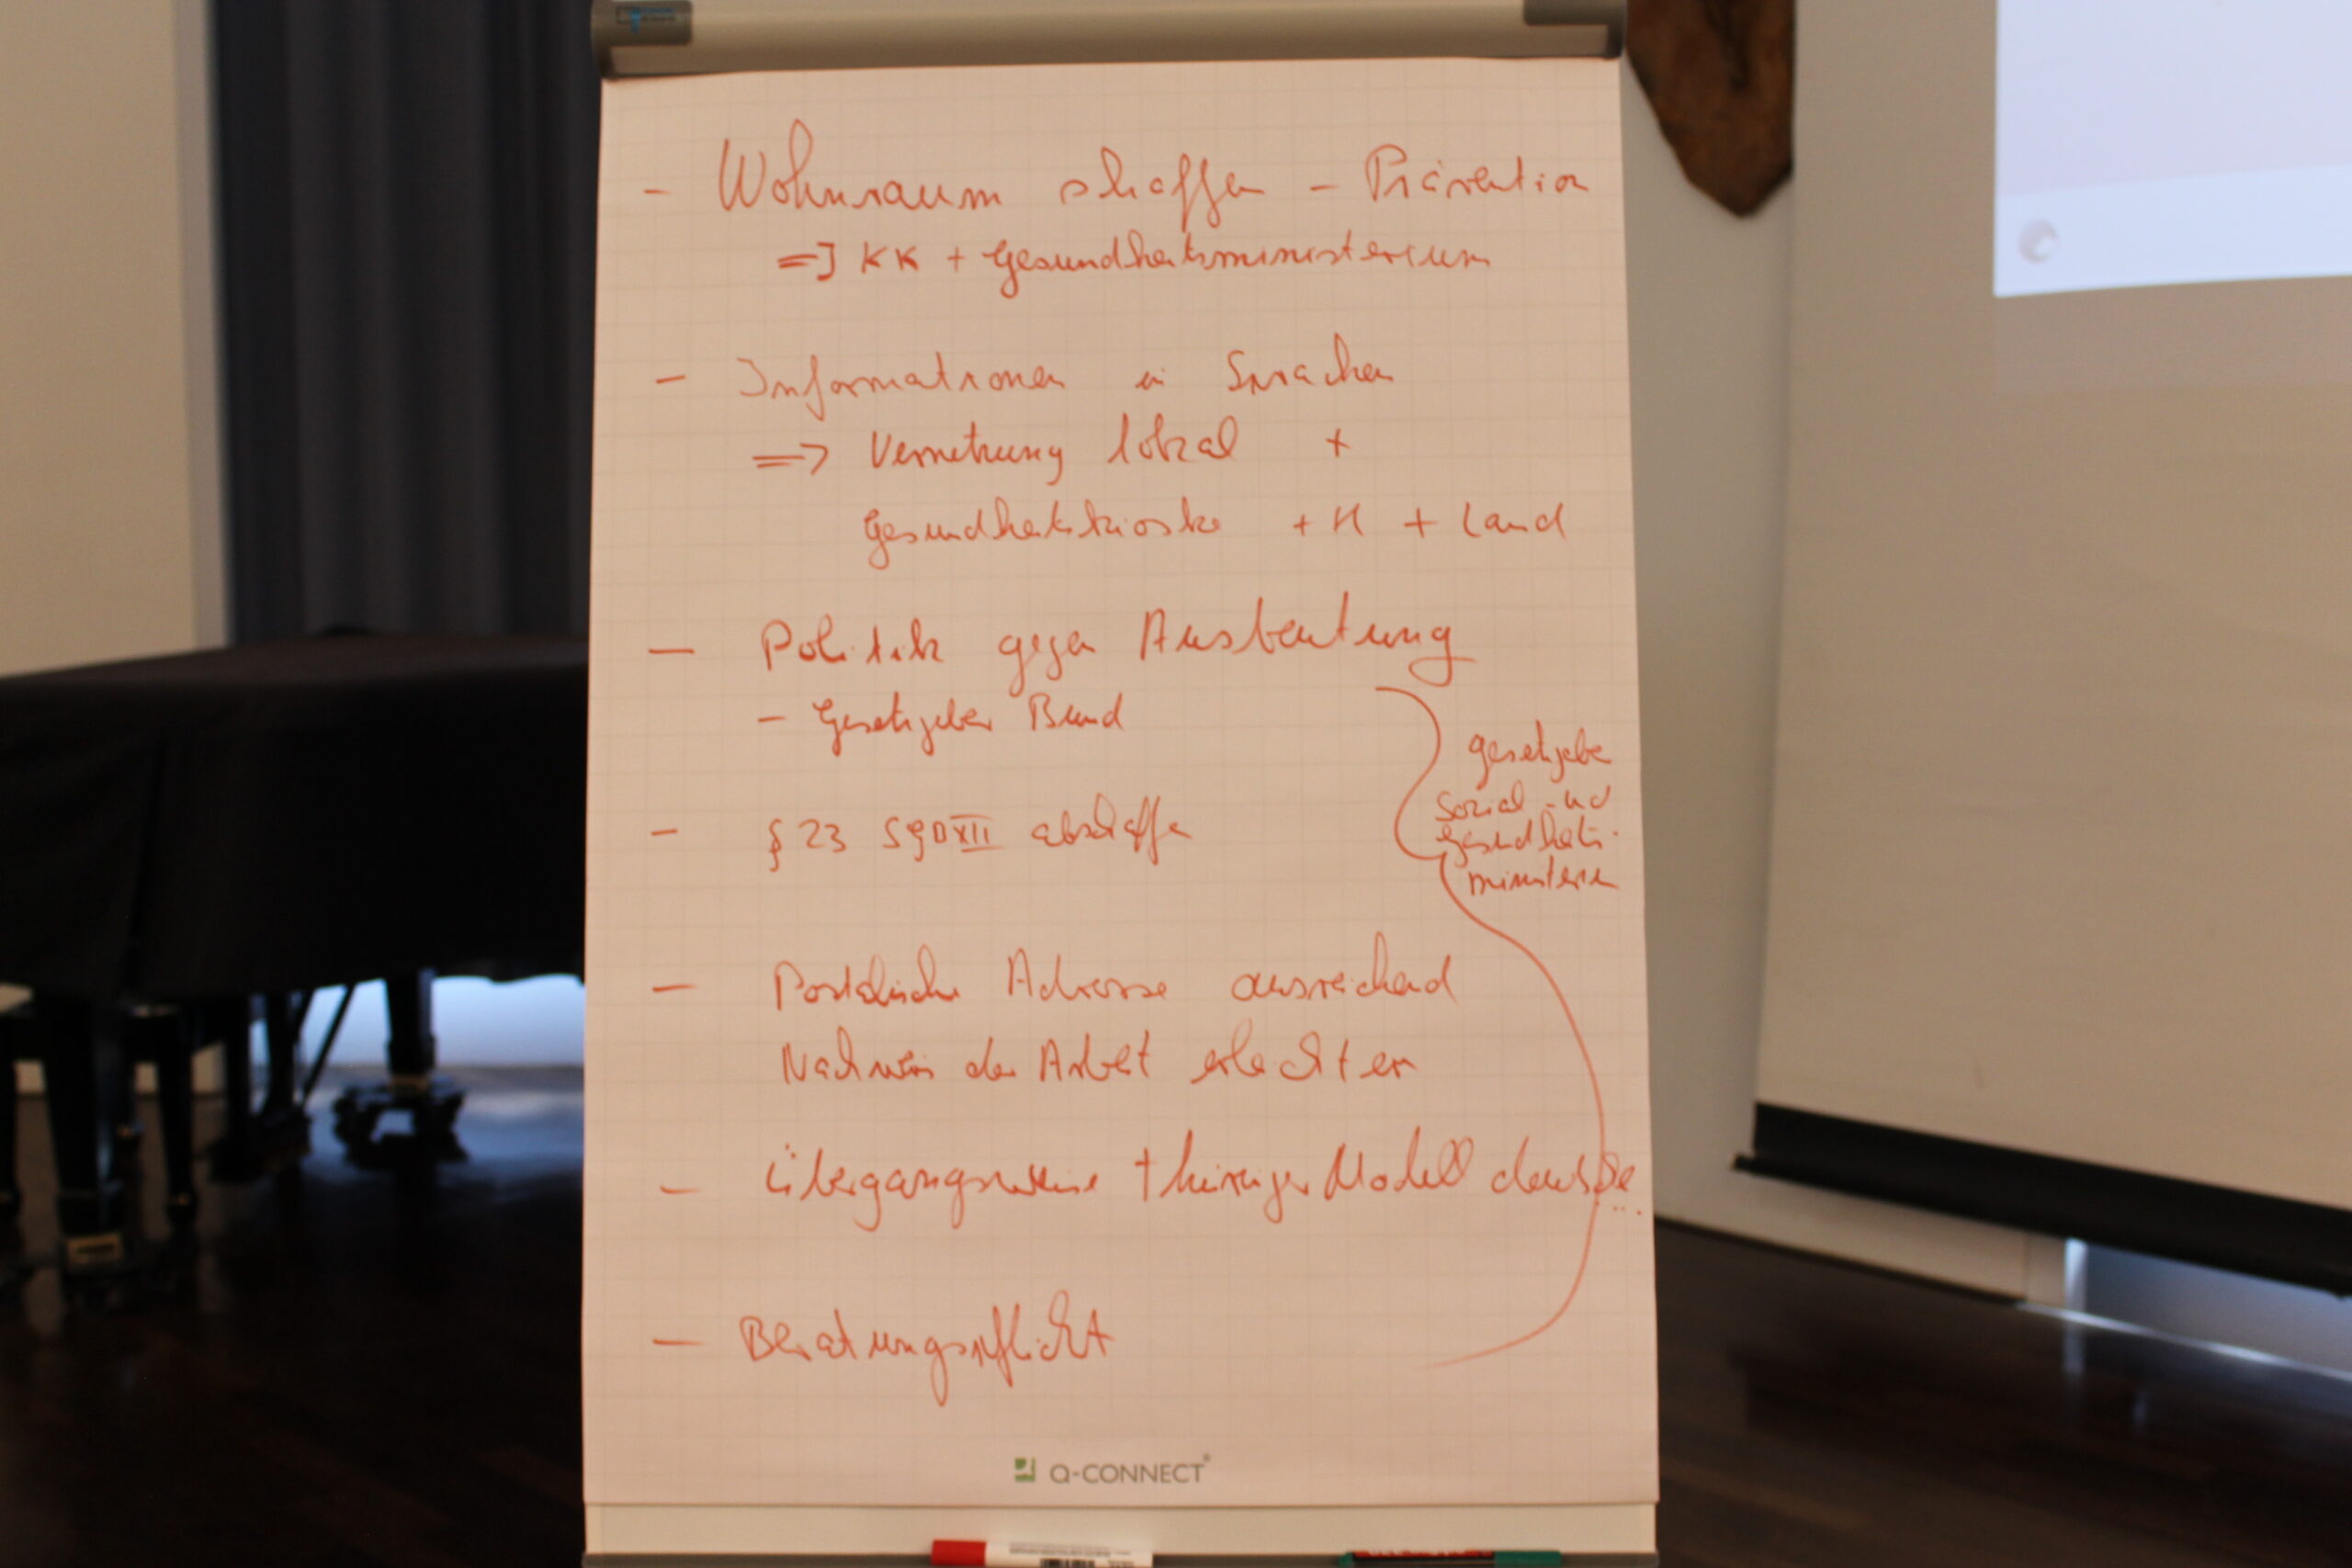 - Wohnraum schaffen - Prävention
=> KK + Gesundheitsministerium
- Informationen in Sprachen
=> Vernetzung lokal +
Gesundheitskioske + K + Land
- Politik gegen Ausbeutung
- Gesetzgeber Bund
- § 23 SGB XII abschaffen
gesetzgebe
Sozial und
Gesundheits-
ministerien
- Postalische Adresse ausreichend
Nachweis der Arbeit erleichtern
- Übergangsweise thüringer Modell
- Beratungspflicht
Q-CONNECT